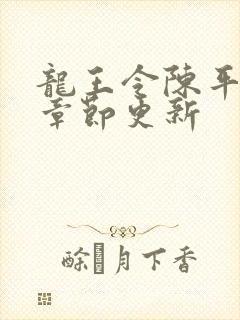 龍王令陳平
章節更新
酴月下香